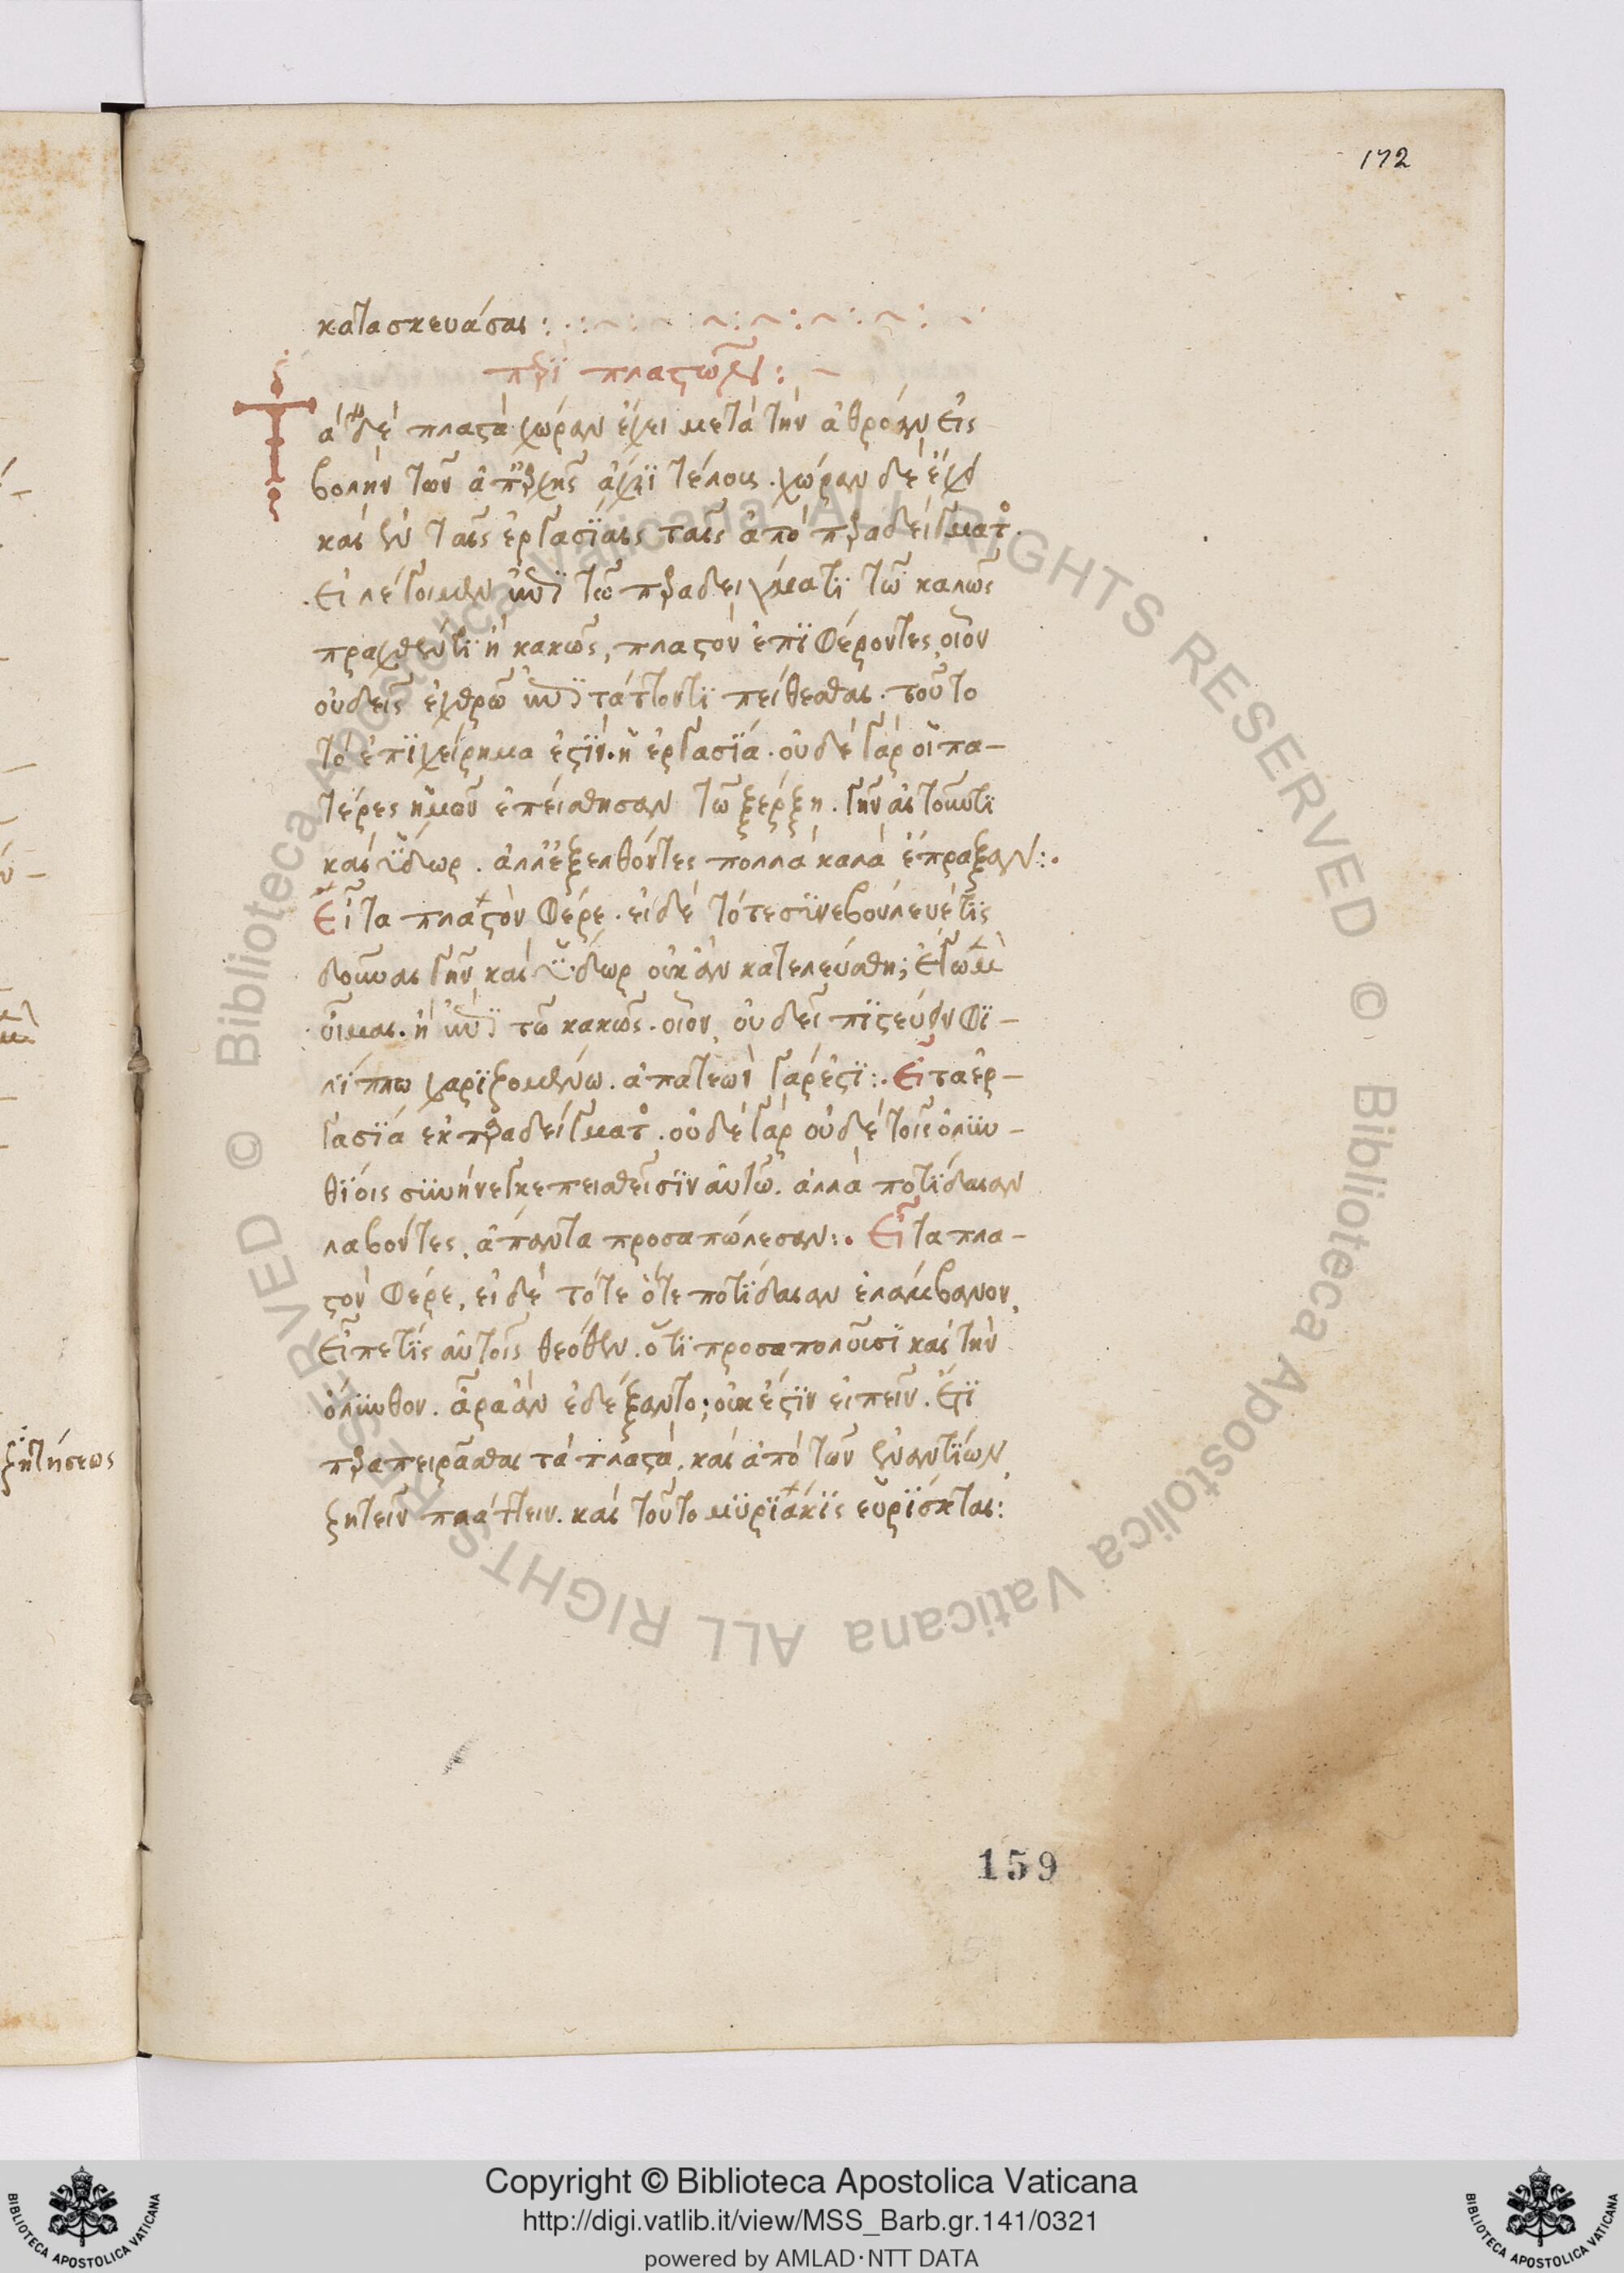 172
κατασκευάσαι :
περὶ πλαστῶν : –
Τὰ δὲ πλαστὰ χώραν ἔχει μετὰ τὴν ἀθρόαν εἰς
βολὴν τῶν ἀπ' ἀρχῆς ἄχρι τέλους . χώραν δὲ ἔχει
καὶ ἐν ταῖς ἐργασίαις ταῖς ἀπὸ παραδείγματος.
εἰ λέγοιμεν ἐπὶ τῶ παραδείγματι τῶ καλῶς
πραχθέντι ἢ κακῶς, πλαστὸν ἐπιφέροντες, οἷον
οὐ δεῖ ἐχθρῶ τάττοντι πείθεσθαι . τοῦτο
τὸ ἐπιχείρημα ἐστίν. ἡ ἐργασία . οὐδὲ γὰρ οἱ πα–
τέρες ἡμῶν ἐπείσθησαν τῶ ξέρξη . γῆν αἰτοῦντι
καὶ ὕδωρ . ἀλλ' ἐξελθόντες πολλὰ καλὰ ἔπραξαν :.
Εἶτα πλαστὸν φέρε . εἰ δὲ τότε σϋνεβούλευέ τις
δοῦναι γῆν καὶ ὕδωρ οὐκ ἂν κατελεύσθη; ἐγὼ μὲν
οἶμαι . ἢ ἐπὶ τῶ κακῶς . οἷον, οὐ δεῖ πιστεύειν φι–
λίππω χαριζομένω . ἀπατεὼν γάρ ἐστι :. Εἶτα ἐρ–
γασία ἐκ παραδείγματος . οὐδὲ γὰρ οὐδὲ τοῖς ὀλυν–
θίοις συνήνεγκε πεισθεῖσιν αὐτῶ . ἀλλὰ ποτίδαιαν
λαβόντες, ἅπαντα προσαπώλεσαν :. Εἶτα πλα–
στὸν φέρε, εἰ δὲ τότε ὅτε ποτίδαιαν ἐλάμβανον,
εἶπέ τις αὐτοῖς θεόθεν . ὅτι προσαπολοῦσι καὶ τὴν
ὄλυνθον . ἆρα ἂν ἐδέξαντο; οὐκ ἔστιν εἰπεῖν . ἔτι
παραπειρᾶσθαι τὰ πλαστὰ, καὶ ἀπὸ τῶν ἐναντίων,
ζητεῖν πλάττειν . καὶ τοῦτο μυριάκις εὑρίσκεται :
ζητήσεως
159
Copyright © Biblioteca Apostolica Vaticana
http://digi.vatlib.it/view/MSS_Barb.gr.141/0321
powered by AMLAD·NTT DATA
BIBLIOTECA APOSTOLICA VATICANA
BIBLIOTECA APOSTOLICA VATICANA
© Biblioteca Apostolica Vaticana ALL RIGHTS RESERVED © Biblioteca Apostolica Vaticana ALL RIGHTS RESERVED